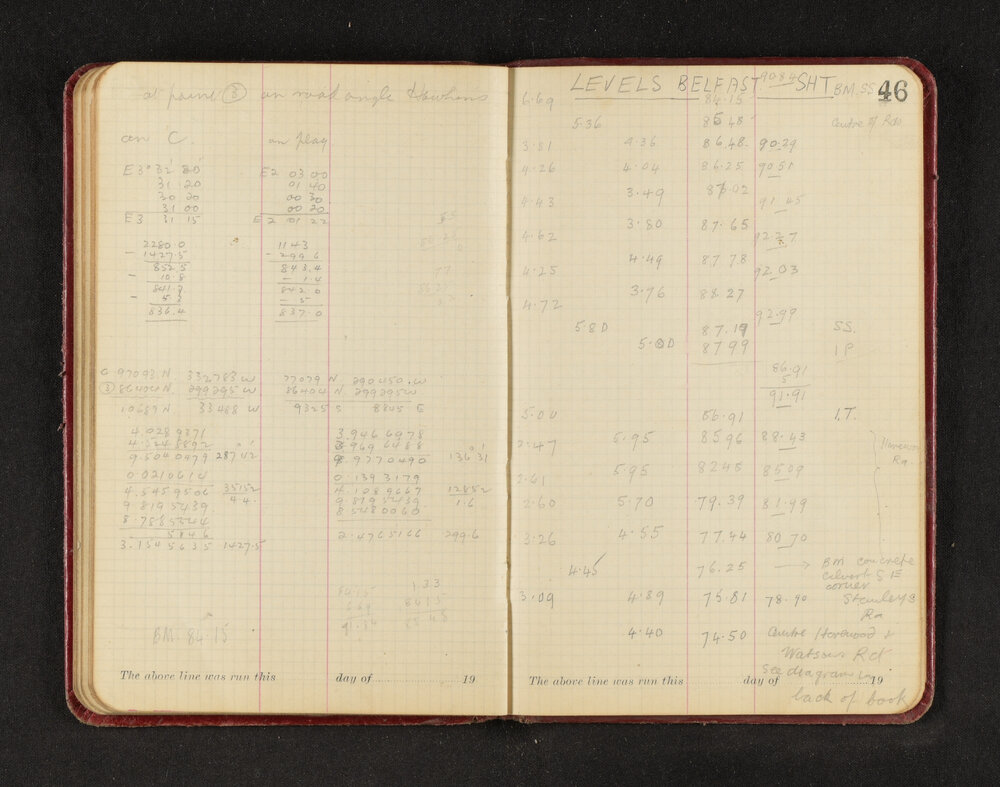 at point (3) on road angle
on C. on flag
E3° 32' 20' E2 03 00
31 20 01 40
30 20 00 30
31 00 00 20
E3 31 15 E2 01 22
2280 0 1143
- 1427.5 - 299 6
852 5 843.4
- 10.8 - 1 4
841.7 842.0
- 5.3 - 5
836.4 837.0
97093 N 332783 W 77079 N 290450 W
(3) 86404 N 299295 W 86404 N 299295 W
10689 N 33488 W 9325 S 8845 E
4.0289371 3.9466978
4.5248892 3.9696488
9.5040479 28742 9.9770490 136 31
0.0210614 0.1393179
4.5459506 35152 4.1089667 12852
9.8195439 44 9.8195439 1.6
8.7885244 8.5480060
5846
3.1545635 1427.5 2.4765166 299.6
BM. 84.15
The above line was run this day of 19
LEVELS BELFAST SHT 46
90.84 BM. SS
6.69 84.15
5.36 85 48 Centre of Rd
3.81 4.36 86.48 90.29
4.26 4.04 86.25 90.51
4.43 3.49 87.02 91.45
4.62 3.80 87.65 92.27
4.25 4.49 87.78 92.03
4.72 3.76 88.27 92.99
5.80 87.19 SS.
5.00 8799 IP
86.91
5
91.91
5.00 86.91 I.T.
2.47 5.95 8596 88.43
2.61 5.95 8248 8509
2.60 5.70 79.39 81.99
3.26 4.55 77.44 80 70
4.45 76.25 → BM concrete
culvert S E
corner
3.09 4.89 75.81 78.90 Stanleys
Rd
4.40 74.50 Centre Harwood &
Watsons Rd
See diagram in
back of book
The above line was run this day of 19